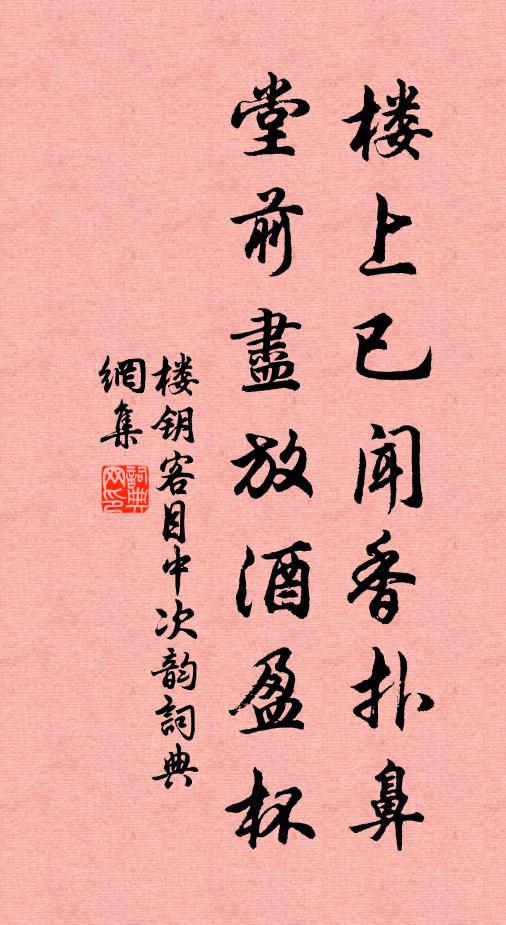 楼上已闻香扑鼻
堂前盡放酒盈杯
楼钥客目中次韵詞典
網集
詞典
网印